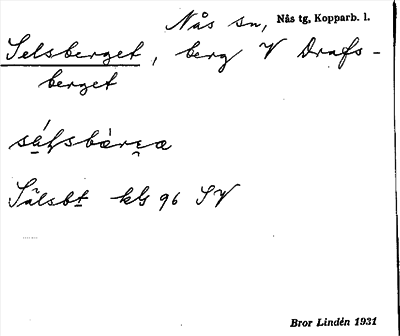 Nås sn, Nås tg, Kopparb. l.
Selsberget, berg V Drafs-
berget
Sälsbt kG 96 SV
Bror Lindén 1931